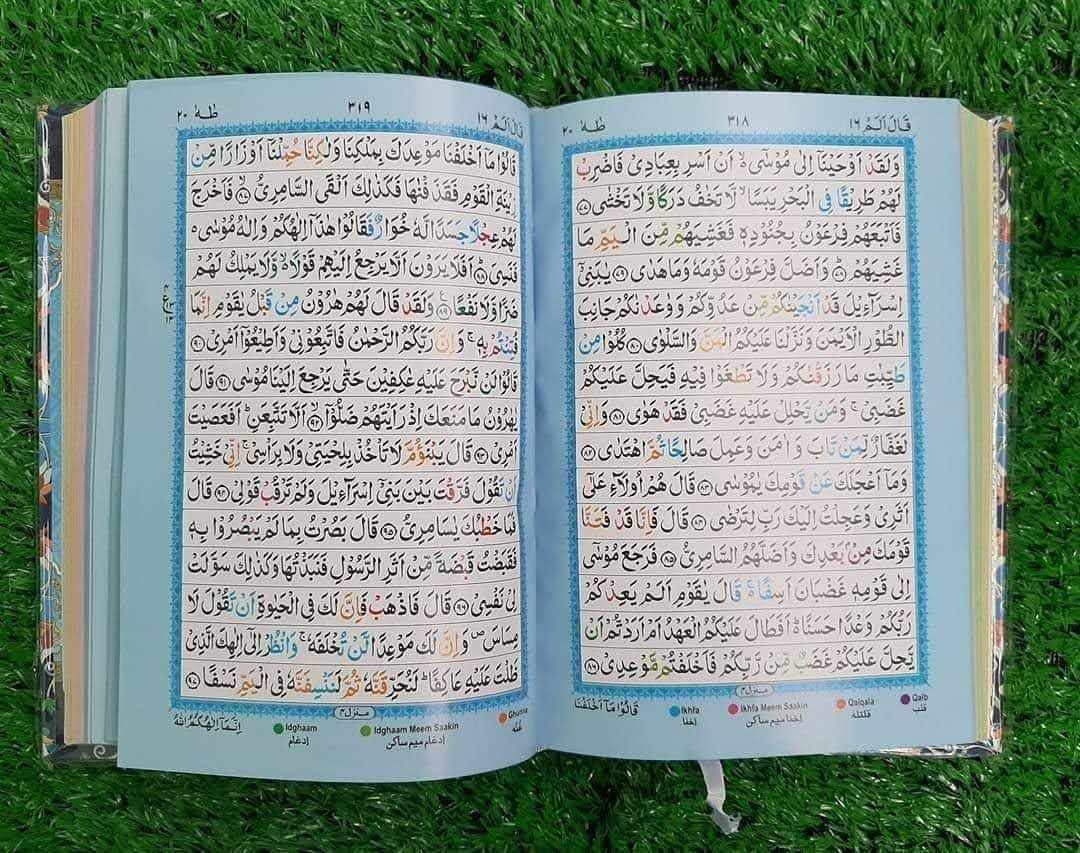 قَالَ اَلَمْ ١٦ ٣١٨ طٰهٰ ٢٠
وَلَقَدْ اَوْحَيْنَاۤ اِلٰى مُوْسٰٓى ۙ اَنْ اَسْرِ بِعِبَادِىْ فَاضْرِبْ
لَهُمْ طَرِيْقًا فِى الْبَحْرِ يَبَسًا ۙ لَّا تَخٰفُ دَرَكًا وَّلَا تَخْشٰى ﴿٧٧﴾
فَاَتْبَعَهُمْ فِرْعَوْنُ بِجُنُوْدِهٖ فَغَشِيَهُمْ مِّنَ الْيَمِّ مَا
غَشِيَهُمْ ﴿٧٨﴾ وَاَضَلَّ فِرْعَوْنُ قَوْمَهٗ وَمَا هَدٰى ﴿٧٩﴾ يٰبَنِىْۤ
اِسْرَآءِيْلَ قَدْ اَنْجَيْنٰكُمْ مِّنْ عَدُوِّكُمْ وَوٰعَدْنٰكُمْ جَانِبَ
الطُّوْرِ الْاَيْمَنَ وَنَزَّلْنَا عَلَيْكُمُ الْمَنَّ وَالسَّلْوٰى ﴿٨٠﴾ كُلُوْا مِنْ
طَيِّبٰتِ مَا رَزَقْنٰكُمْ وَلَا تَطْغَوْا فِيْهِ فَيَحِلَّ عَلَيْكُمْ
غَضَبِىْ ۚ وَمَنْ يَّحْلِلْ عَلَيْهِ غَضَبِىْ فَقَدْ هَوٰى ﴿٨١﴾ وَاِنِّىْ
لَغَفَّارٌ لِّمَنْ تَابَ وَاٰمَنَ وَعَمِلَ صَالِحًا ثُمَّ اهْتَدٰى ﴿٨٢﴾
وَمَاۤ اَعْجَلَكَ عَنْ قَوْمِكَ يٰمُوْسٰى ﴿٨٣﴾ قَالَ هُمْ اُولَآءِ عَلٰٓى
اَثَرِىْ وَعَجِلْتُ اِلَيْكَ رَبِّ لِتَرْضٰى ﴿٨٤﴾ قَالَ فَاِنَّا قَدْ فَتَنَّا
قَوْمَكَ مِنْۢ بَعْدِكَ وَاَضَلَّهُمُ السَّامِرِىُّ ﴿٨٥﴾ فَرَجَعَ مُوْسٰٓى
اِلٰى قَوْمِهٖ غَضْبَانَ اَسِفًا ۚ قَالَ يٰقَوْمِ اَلَمْ يَعِدْكُمْ
رَبُّكُمْ وَعْدًا حَسَنًا ؕ اَفَطَالَ عَلَيْكُمُ الْعَهْدُ اَمْ اَرَدْتُّمْ اَنْ
يَّحِلَّ عَلَيْكُمْ غَضَبٌ مِّنْ رَّبِّكُمْ فَاَخْلَفْتُمْ مَّوْعِدِىْ ﴿٨٦﴾
منزل ٤
قَالُوْا مَاۤ اَخْلَفْنَا
Ikhfa Ikhfa Meem Saakin Qalqala Qalb
اخفا اخفا میم ساکن قلقلہ قلب
قَالَ اَلَمْ ١٦ ٣١٩ طٰهٰ ٢٠
قَالُوْا مَاۤ اَخْلَفْنَا مَوْعِدَكَ بِمَلْكِنَا وَلٰكِنَّا حُمِّلْنَاۤ اَوْزَارًا مِّنْ
زِيْنَةِ الْقَوْمِ فَقَذَفْنٰهَا فَكَذٰلِكَ اَلْقَى السَّامِرِىُّ ﴿٨٧﴾ فَاَخْرَجَ
لَهُمْ عِجْلًا جَسَدًا لَّهٗ خُوَارٌ فَقَالُوْا هٰذَاۤ اِلٰهُكُمْ وَاِلٰهُ مُوْسٰى ۙ
فَنَسِىَ ﴿٨٨﴾ اَفَلَا يَرَوْنَ اَلَّا يَرْجِعُ اِلَيْهِمْ قَوْلًا ۙ وَّلَا يَمْلِكُ لَهُمْ
ضَرًّا وَّلَا نَفْعًا ﴿٨٩﴾ وَلَقَدْ قَالَ لَهُمْ هٰرُوْنُ مِنْ قَبْلُ يٰقَوْمِ اِنَّمَا
فُتِنْتُمْ بِهٖ ۚ وَاِنَّ رَبَّكُمُ الرَّحْمٰنُ فَاتَّبِعُوْنِىْ وَاَطِيْعُوْۤا اَمْرِىْ ﴿٩٠﴾
قَالُوْا لَنْ نَّبْرَحَ عَلَيْهِ عٰكِفِيْنَ حَتّٰى يَرْجِعَ اِلَيْنَا مُوْسٰى ﴿٩١﴾ قَالَ
يٰهٰرُوْنُ مَا مَنَعَكَ اِذْ رَاَيْتَهُمْ ضَلُّوْۤا ﴿٩٢﴾ اَلَّا تَتَّبِعَنِ ؕ اَفَعَصَيْتَ
اَمْرِىْ ﴿٩٣﴾ قَالَ يَبْنَؤُمَّ لَا تَاْخُذْ بِلِحْيَتِىْ وَلَا بِرَاْسِىْ ۚ اِنِّىْ خَشِيْتُ
اَنْ تَقُوْلَ فَرَّقْتَ بَيْنَ بَنِىْۤ اِسْرَآءِيْلَ وَلَمْ تَرْقُبْ قَوْلِىْ ﴿٩٤﴾ قَالَ
فَمَا خَطْبُكَ يٰسَامِرِىُّ ﴿٩٥﴾ قَالَ بَصُرْتُ بِمَا لَمْ يَبْصُرُوْا بِهٖ
فَقَبَضْتُ قَبْضَةً مِّنْ اَثَرِ الرَّسُوْلِ فَنَبَذْتُهَا وَكَذٰلِكَ سَوَّلَتْ
لِىْ نَفْسِىْ ﴿٩٦﴾ قَالَ فَاذْهَبْ فَاِنَّ لَكَ فِى الْحَيٰوةِ اَنْ تَقُوْلَ لَا
مِسَاسَ ۖ وَاِنَّ لَكَ مَوْعِدًا لَّنْ تُخْلَفَهٗ ۚ وَانْظُرْ اِلٰٓى اِلٰهِكَ الَّذِىْ
ظَلْتَ عَلَيْهِ عَاكِفًا ؕ لَنُحَرِّقَنَّهٗ ثُمَّ لَنَنْسِفَنَّهٗ فِى الْيَمِّ نَسْفًا ﴿٩٧﴾
منزل ٤
Idghaam Idghaam Meem Saakin Ghunna
ادغام ادغام میم ساکن غنہ
اِنَّمَاۤ اِلٰهُكُمُ اللّٰهُ